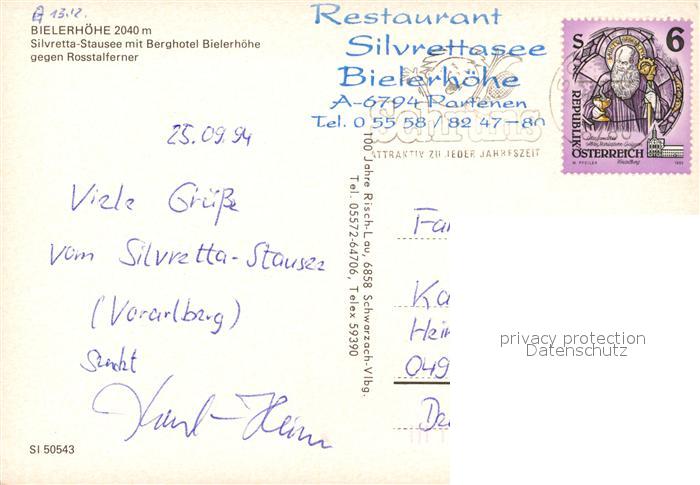 13.12.
BIELERHÖHE 2040 m
Silvretta-Stausee mit Berghotel Bielerhöhe
gegen Rosstalferner
Restaurant
Silvrettasee
Bielerhöhe
A-6794 Partenen
Tel. 0 55 58 / 82 47-80
Schruns
ATTRAKTIV ZU JEDER JAHRESZEIT
S 6
REPUBLIK
ÖSTERREICH
25.09.94
Viele Grüße
vom Silvretta-Stausee
(Vorarlberg)
Karl-Heinz
100 Jahre Risch-Lau, 6858 Schwarzach-Vlbg.
Tel. 05572-64706, Telex 59390
Fa
Ka
Hein
049
privacy protection
Datenschutz
SI 50543